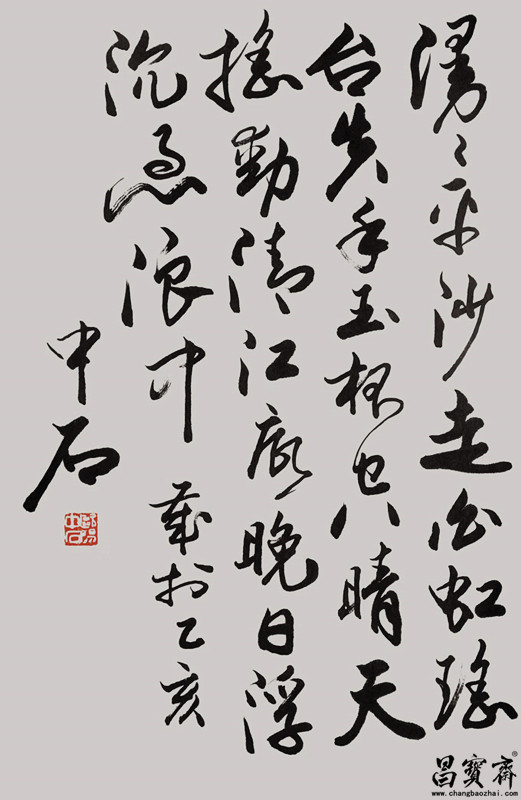 漫々平沙走白虹瑤
台失手玉杯空晴天
搖動清江底晚日浮
沉急浪中 歲於乙亥
中石
歐陽中石
昌寶齋®
www.changbaozhai.com